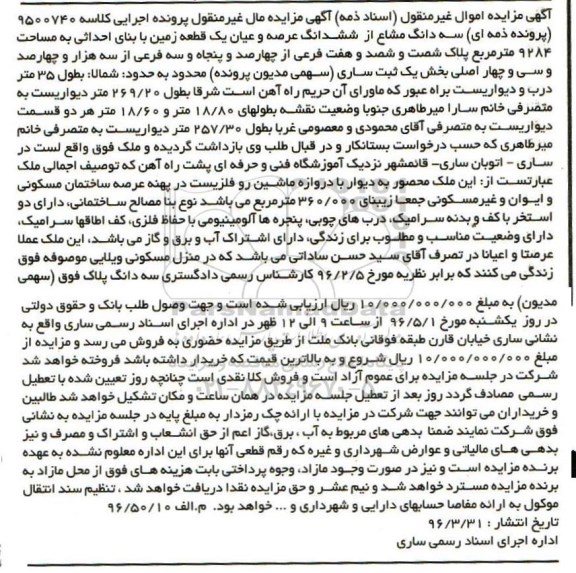 آگهی مزایده اموال غیرمنقول (اسناد ذمه) آگهی مزایده مال غیرمنقول پرونده اجرایی کلاسه ۹۵۰۰۷۴۰
(پرونده ذمه ای) سه دانگ مشاع از ششدانگ عرصه و عیان یک قطعه زمین با بنای احداثی به مساحت
۹۲۸۴ مترمربع پلاک شصت و شصد و هفت فرعی از چهارصد و پنجاه و سه فرعی از سه هزار و چهارصد
و سی و چهار اصلی بخش یک ثبت ساری (سهمی مدیون پرونده) محدود به حدود: شمالا: بطول ۳۵ متر
درب و دیواریست براه عبور که ماورای آن حریم راه آهن است شرقا بطول ۲۶۹/۲۰ متر دیواریست به
متصرفی خانم سارا میرطاهری جنوبا وضعیت نقشه بطولهای ۱۸/۸۰ متر و ۱۸/۶۰ متر هر دو قسمت
دیواریست به متصرفی آقای محمودی و معصومی غربا بطول ۲۵۷/۳۰ متر دیواریست به متصرفی خانم
میرطاهری که حسب درخواست بستانکار و در قبال طلب وی بازداشت گردیده و ملک فوق واقع است در
ساری - اتوبان ساری- قائمشهر نزدیک آموزشگاه فنی و حرفه ای پشت راه آهن که توصیف اجمالی ملک
عبارتست از: این ملک محصور به دیوار با دروازه ماشین رو فلزیست در پهنه عرصه ساختمان مسکونی
و ایوان و غیرمسکونی جمعا زیربنای ۳۶۰/۰۰۰ مترمربع می باشد نوع بنا مصالح ساختمانی، دارای دو
استخر با کف و بدنه سرامیک، درب های چوبی، پنجره ها آلومینیومی با حفاظ فلزی، کف اطاقها سرامیک،
دارای وضعیت مناسب و مطلوب برای زندگی، دارای اشتراک آب و برق و گاز می باشد، این ملک عملا
عرصتا و اعیانا در تصرف آقای سید حسن ساداتی می باشد که در منزل مسکونی ویلایی موصوفه فوق
زندگی می کنند که برابر نظریه مورخ ۹۶/۲/۵ کارشناس رسمی دادگستری سه دانگ پلاک فوق (سهمی
مدیون) به مبلغ ۱۰/۰۰۰/۰۰۰/۰۰۰ ریال ارزیابی شده است و جهت وصول طلب بانک و حقوق دولتی
در روز یکشنبه مورخ ۹۶/۵/۱ از ساعت ۹ الی ۱۲ ظهر در اداره اجرای اسناد رسمی ساری واقع به
نشانی ساری خیابان قارن طبقه فوقانی بانک ملت از طریق مزایده حضوری به فروش می رسد و مزایده از
مبلغ ۱۰/۰۰۰/۰۰۰/۰۰۰ ریال شروع و به بالاترین قیمت که خریدار داشته باشد فروخته خواهد شد
شرکت در جلسه مزایده برای عموم آزاد است و فروش کلا نقدی است چنانچه روز تعیین شده با تعطیل
رسمی مصادف گردد روز بعد از تعطیل جلسه مزایده در همان ساعت و مکان تشکیل خواهد شد طالبین
و خریداران می توانند جهت شرکت در مزایده با ارائه چک رمزدار به مبلغ پایه در جلسه مزایده به نشانی
فوق شرکت نمایند ضمنا بدهی های مربوط به آب ، برق،گاز اعم از حق انشعاب و اشتراک و مصرف و نیز
بدهی های مالیاتی و عوارض شهرداری و غیره که رقم قطعی آنها برای این اداره معلوم نشده به عهده
برنده مزایده است و نیز در صورت وجود مازاد، وجوه پرداختی بابت هزینه های فوق از محل مازاد به
برنده مزایده مسترد خواهد شد و نیم عشر و حق مزایده نقدا دریافت خواهد شد ، تنظیم سند انتقال
موکول به ارائه مفاصا حسابهای دارایی و شهرداری و ... خواهد بود. م.الف ۹۶/۵۰/۱۰
تاریخ انتشار : ۹۶/۳/۳۱
اداره اجرای اسناد رسمی ساری